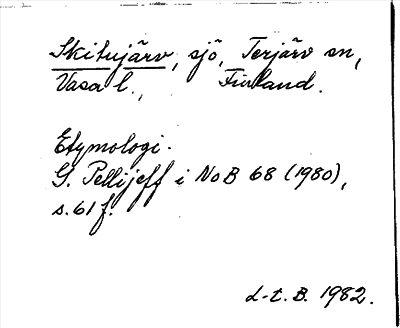 Skitujärv, sjö, Terjärv sn,
Vasa l., Finland.
Etymologi.
G. Pellijeff i NoB 68 (1980),
s. 61 f.
d-t. B. 1982.